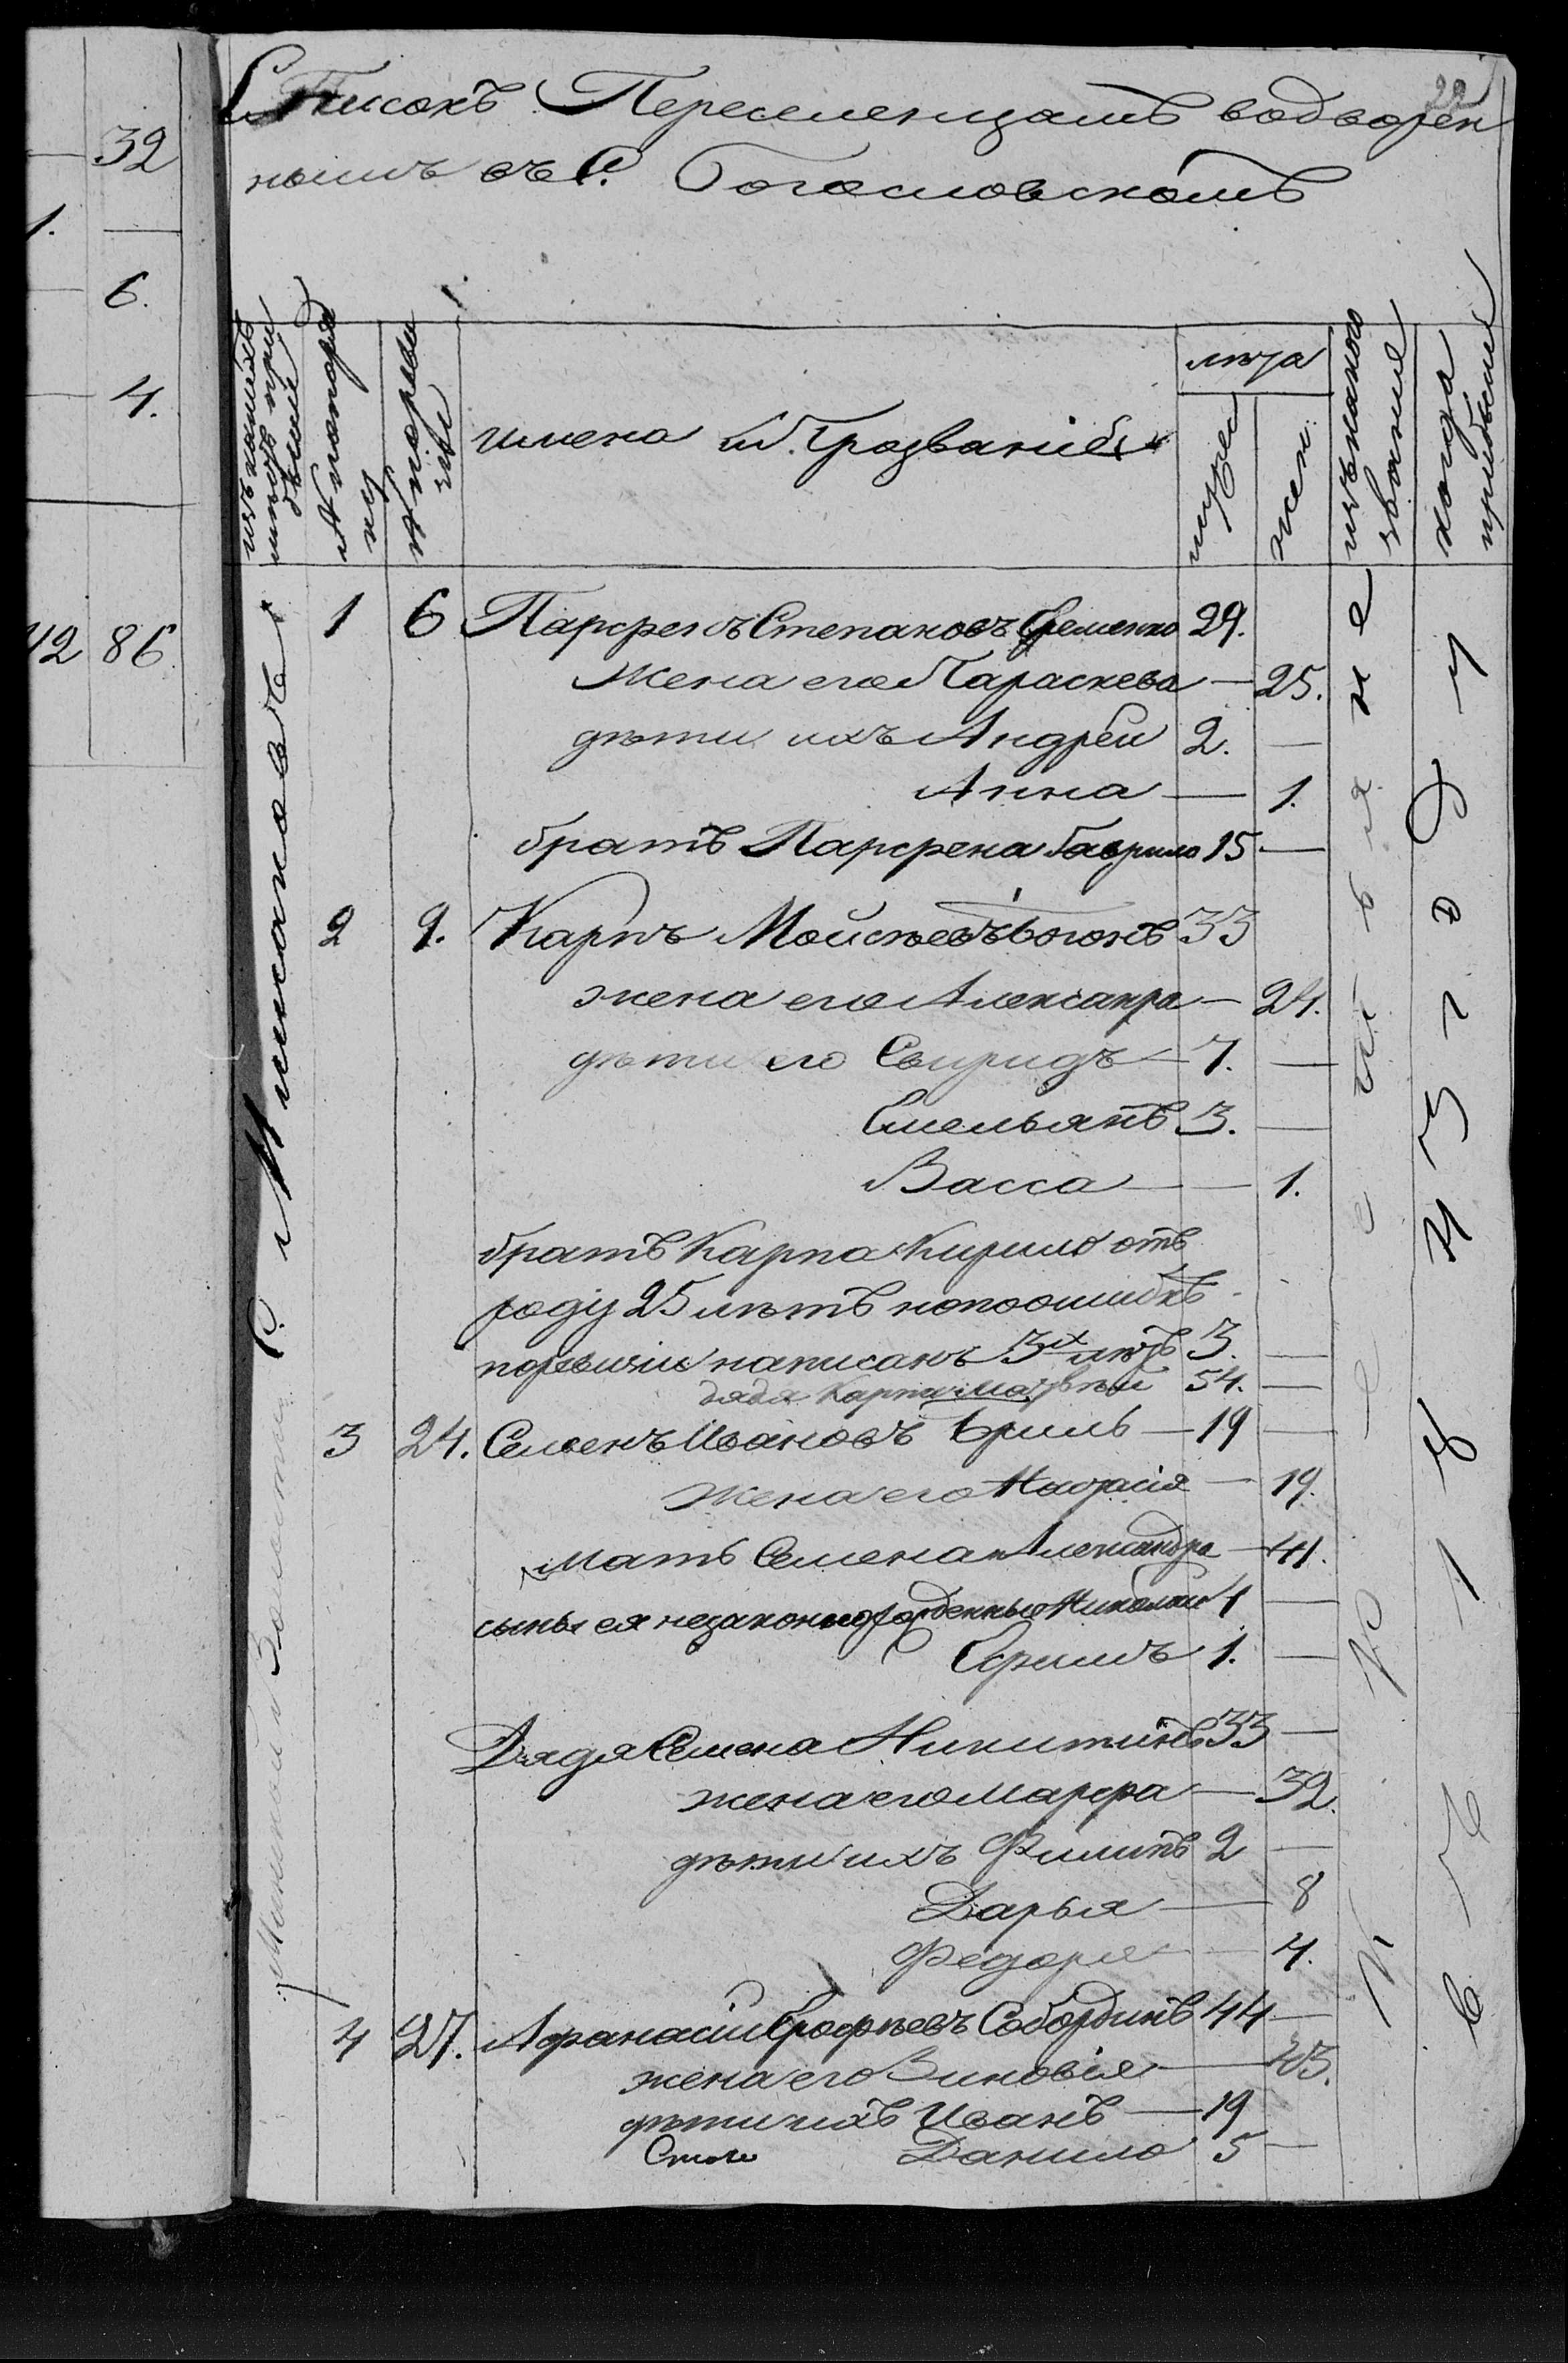 32
1.
6.
4.
42 86
22
Списокъ Переселенцамъ водворен
нымъ въ С. Богословскомъ
изъ какихъ
мѣстъ при
были
№ по поря
ку
№ по реви
зіи
имена и прозваніе
лѣта
мужес
жен.
изъ какого
званія
когда
прибыли
С. Мишкова
волости
1 6 Парфенъ Степановъ Еременко 29.
Жена его Параскева — 25.
дѣти ихъ Андрей 2. —
Анна — 1.
братъ Парфена Гаврило 15 —
2 9. Карпъ Мойсѣевъ 33
жена его Александра — 24.
дѣти его Свиридъ — 7. —
Емельянъ 3. —
Васса — 1.
братъ Карпа Кирило отъ
роду 25 лѣтъ но по ошибкѣ
по ревизіи написанъ 3х лѣтъ 3. —
дядя Карпа Матвѣй 54. —
3 24. Семенъ Ивановъ Бриль — 19 —
жена его Настасія — 19.
Мать Семена Александра — 41.
сыны ея незаконнорожденные Николай 1 —
Ефимъ 1. —
Дядя Семена Никитинъ 33 —
жена его Марфа — 32.
дѣти ихъ Филипъ 2 —
Дарья — 8
Федора — 4.
4 27. Афанасій Ерофѣевъ 44 —
жена его Зиновія — 43.
дѣти ихъ Иванъ — 19
Данило 5 —
Крестьяне
въ 1843 году